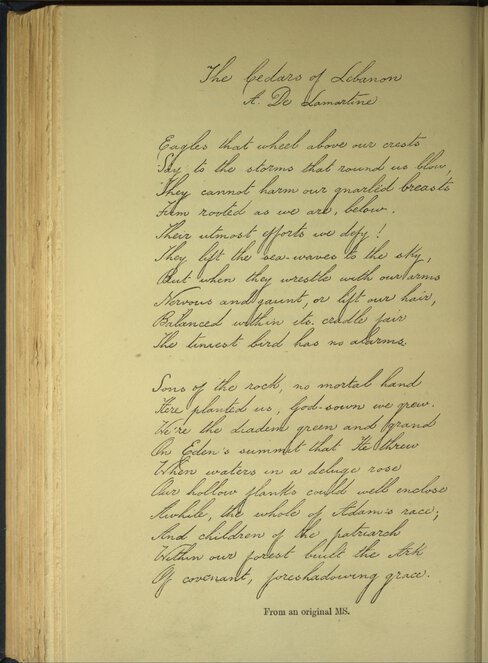 The Cedars of Lebanon
A. De Lamartine
Eagles that wheel above our crests
Say to the storms that round us blow,
They cannot harm our gnarled breasts
Firm rooted as we are, below.
Their utmost efforts we defy!
They lift the sea-waves to the sky,
But when they wrestle with our arms
Nervous and gaunt, or lift our hair,
Balanced within its cradle fair
The tiniest bird has no alarms.
Sons of the rock, no mortal hand
Here planted us, God-sown we grew.
We're the diadem green and grand
On Eden's summit that He threw
When waters in a deluge rose
Our hollow flanks could well enclose
Awhile, the whole of Adam's race;
And children of the patriarch
Within our forest built the Ark
Of covenant, foreshadowing grace.
From an original MS.